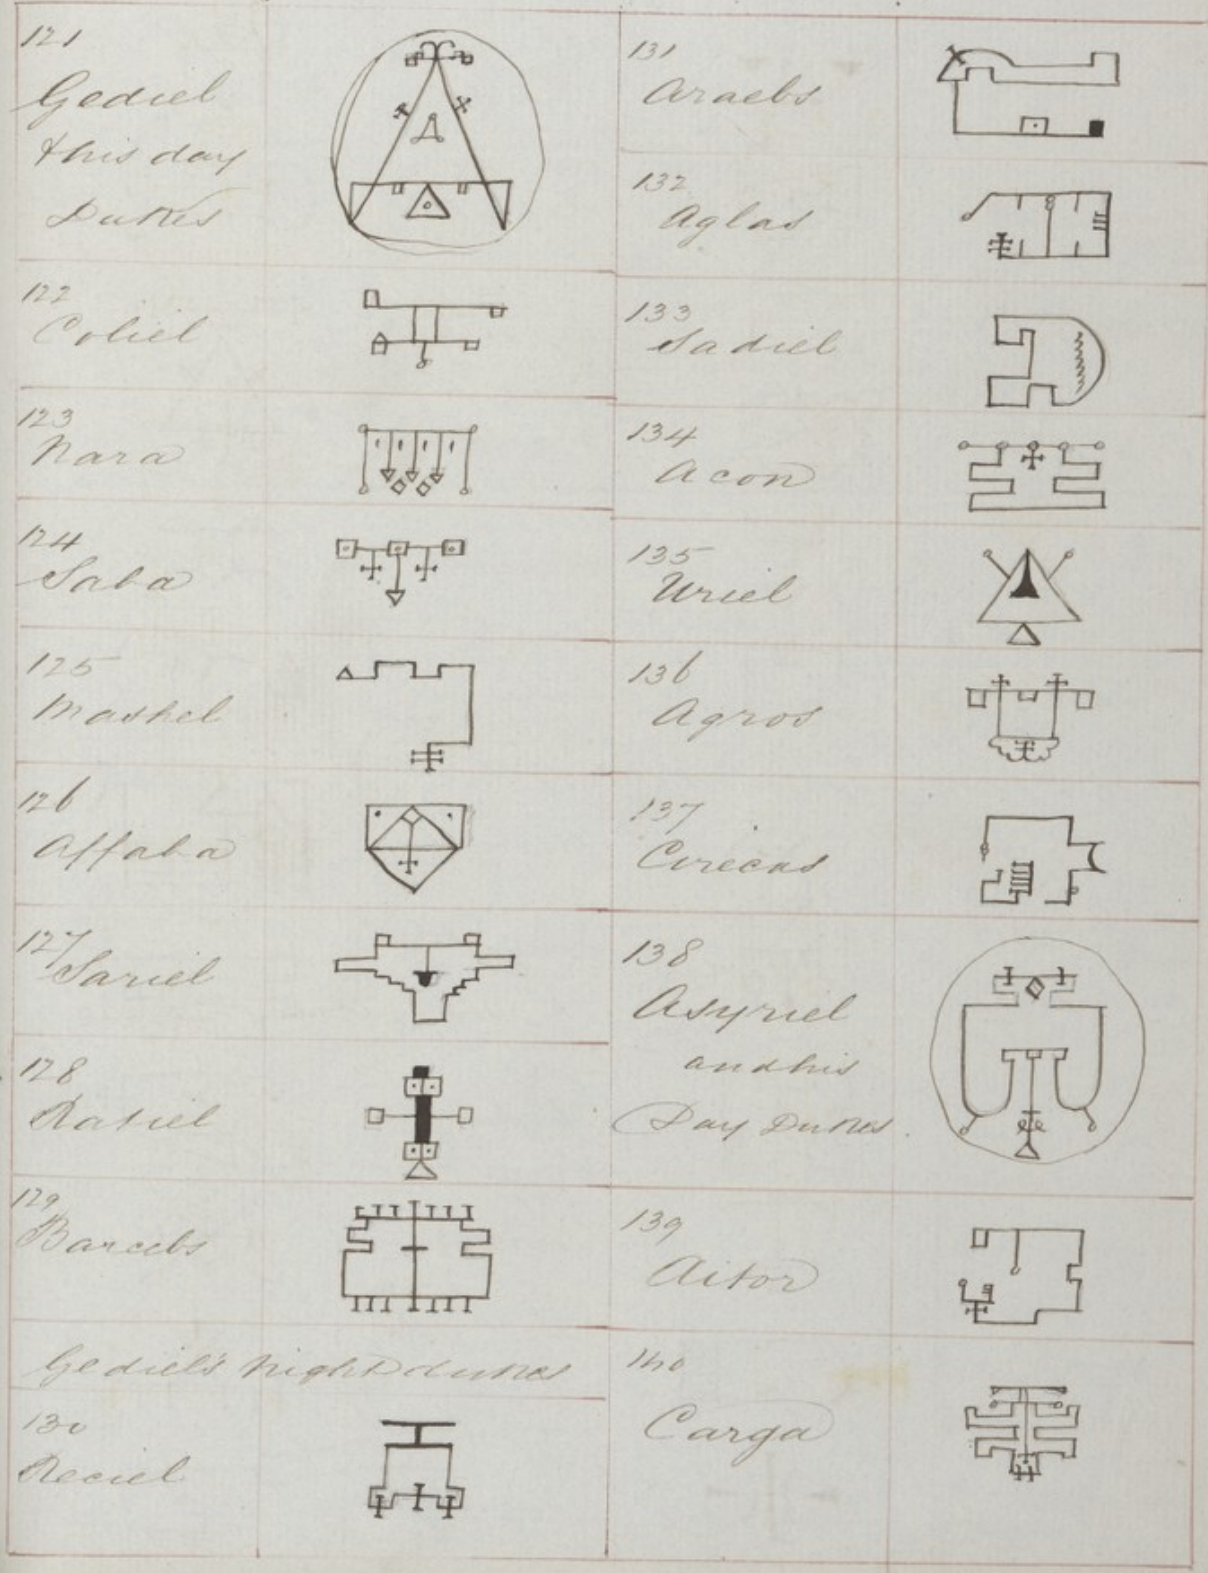 121
Gediel
this day
Dukes
122
Coliel
123
Nara
124
Saba
125
Mashel
126
Affaba
127
Sariel
128
Ratiel
129
Barcebs
Gediel's night dukes
130
Reciel
131
Araebs
132
Aglas
133
Sadiel
134
Acon
135
Uriel
136
Agros
137
Cirecas
138
Asyriel
and his
Day Dukes
139
Aitor
140
Carga